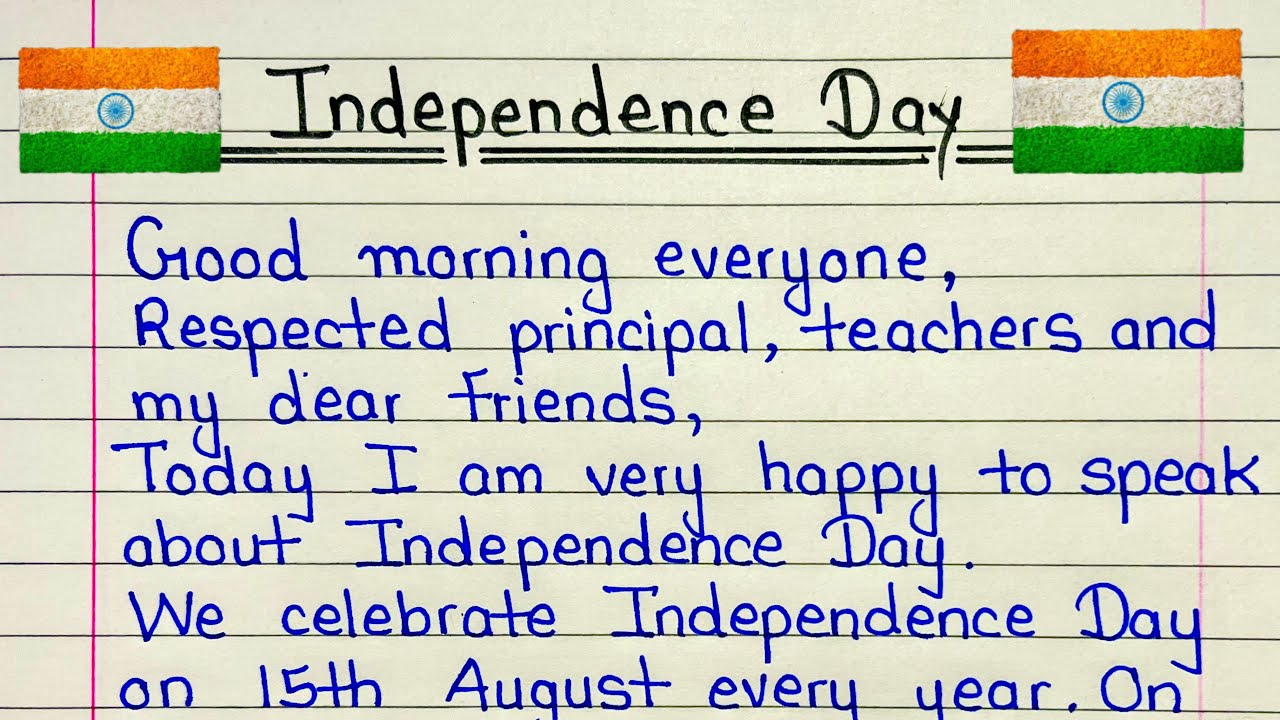 Independence Day
Good morning everyone,
Respected principal, teachers and
my dear friends,
Today I am very happy to speak
about Independence Day.
We celebrate Independence Day
on 15th August every year. On